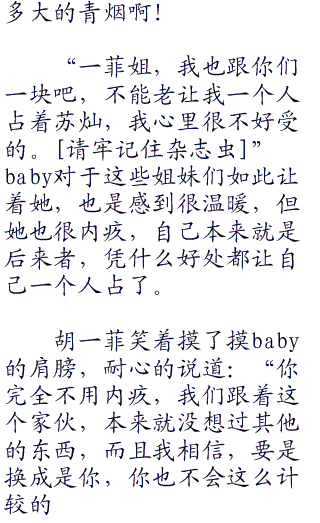 多大的青烟啊！
“一菲姐，我也跟你们
一块吧，不能老让我一个人
占着苏灿，我心里很不好受
的。[请牢记住杂志虫]”
baby对于这些姐妹们如此让
着她，也是感到很温暖，但
她也很内疚，自己本来就是
后来者，凭什么好处都让自
己一个人占了。
胡一菲笑着摸了摸baby
的肩膀，耐心的说道：“你
完全不用内疚，我们跟着这
个家伙，本来就没想过其他
的东西，而且我相信，要是
换成是你，你也不会这么计
较的